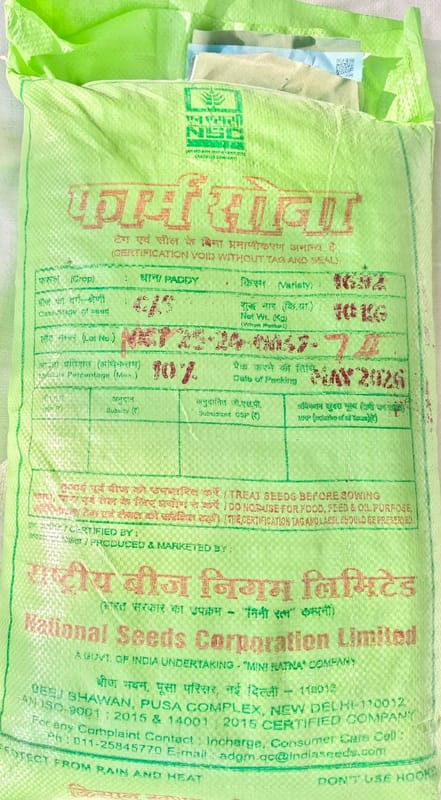 एन एस सी
NSC
फार्म सोना
टैग एवं सील के बिना प्रमाणीकरण अमान्य है
(CERTIFICATION VOID WITHOUT TAG AND SEAL)
फसल (Crop) : धान/ PADDY किस्म (Variety) 1692
बीज का वर्ग-श्रेणी Class/Stage of seed C/S शुद्ध भार (कि.ग्रा.) Net Wt. (Kg) (When Packed) 10 KG
लॉट नम्बर (Lot No.)
प्रतिशत (अधिकतम) Percentage (Max.) 10% पैक करने की तिथि Date of Packing MAY 2026
अनुदान Subsidy (₹) अनुदानित जी.एस.पी. Subsidized GSP (₹)
बुवाई पूर्व बीज को उपचारित करें / TREAT SEEDS BEFORE SOWING
/ DO NOT USE FOR FOOD, FEED & OIL PURPOSE
/ THE CERTIFICATION TAG AND LABEL SHOULD BE PRESERVED
/ CERTIFIED BY :
/ PRODUCED & MARKETED BY :
राष्ट्रीय बीज निगम लिमिटेड
(भारत सरकार का उपक्रम – "मिनी रत्न" कम्पनी)
National Seeds Corporation Limited
A GOVT. OF INDIA UNDERTAKING - "MINI RATNA" COMPANY
बीज भवन, पूसा परिसर, नई दिल्ली – 110012
BEEJ BHAWAN, PUSA COMPLEX, NEW DELHI-110012
AN ISO-9001 : 2015 & 14001 : 2015 CERTIFIED COMPANY
For any Complaint Contact : Incharge, Consumer Care Cell :
: 011-25845770 E-mail : adgm.qc@indiaseeds.com
PROTECT FROM RAIN AND HEAT DON'T USE HOOK